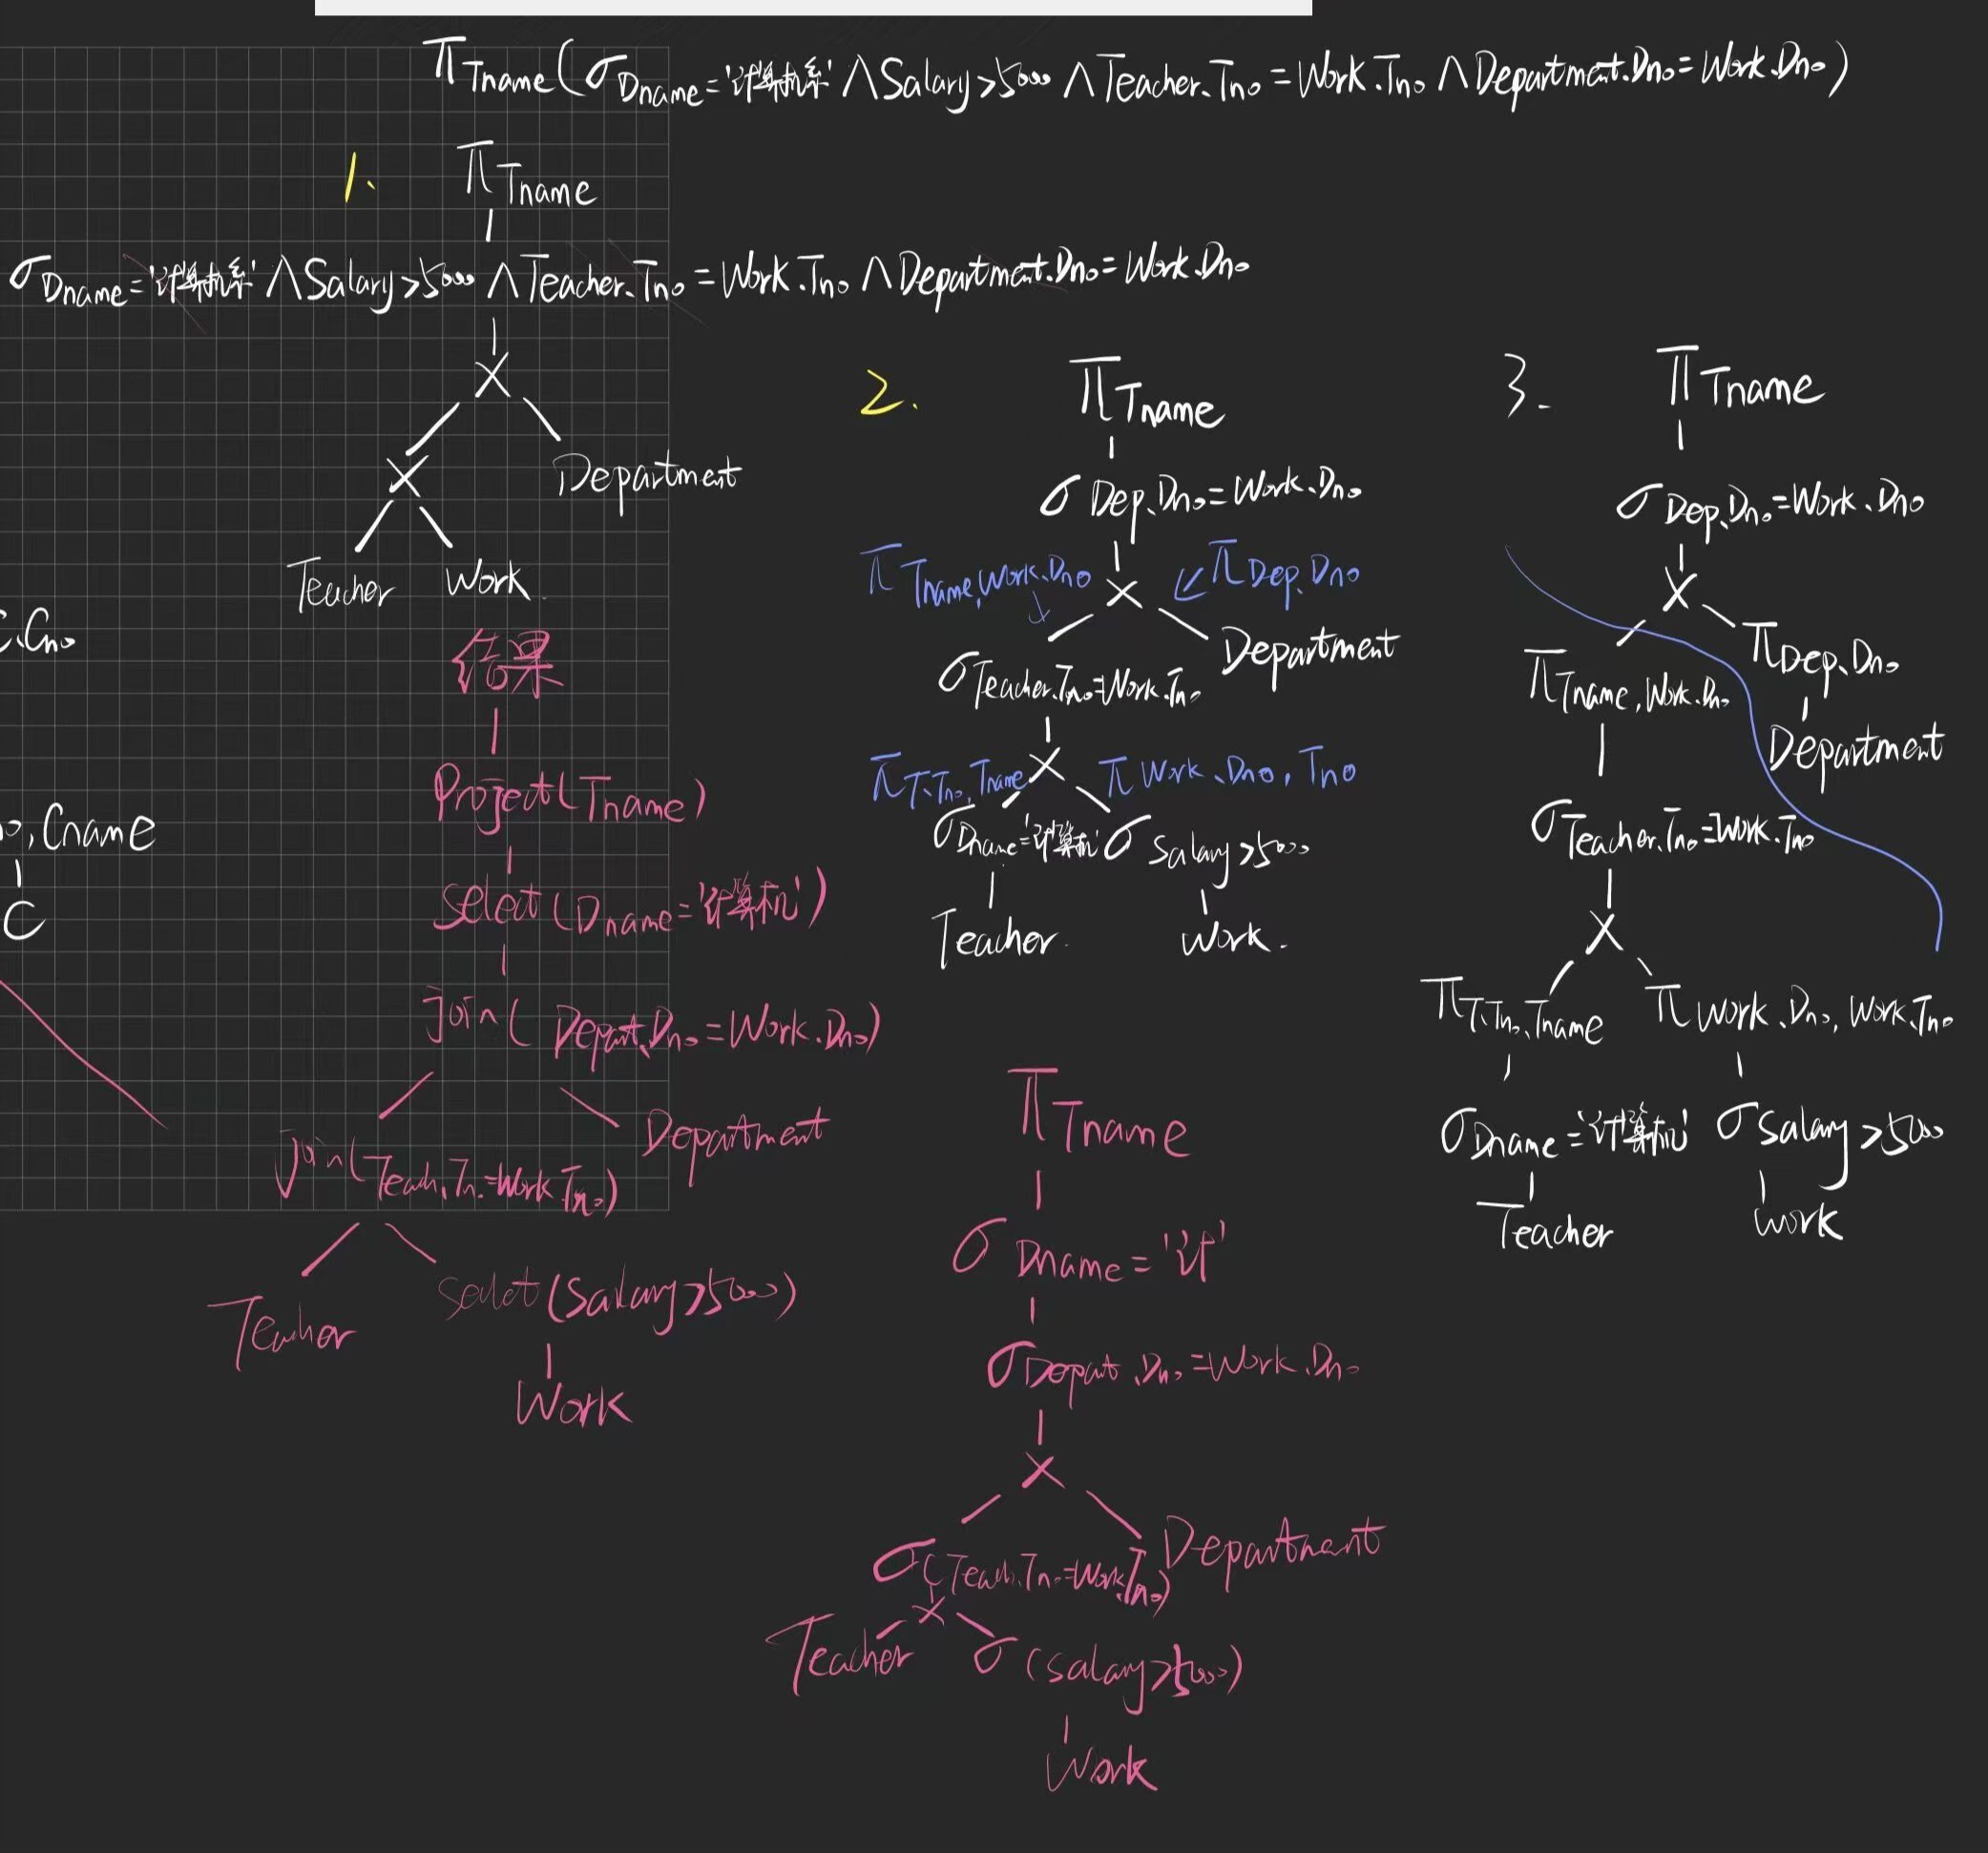 π Tname(σ Dname='计算机系' ∧ Salary>5000 ∧ Teacher.Tno=Work.Tno ∧ Department.Dno=Work.Dno)
1.
π Tname
σ Dname='计算机系' ∧ Salary>5000 ∧ Teacher.Tno=Work.Tno ∧ Department.Dno=Work.Dno
×
× Department
Teacher Work
结果
Project(Tname)
Select(Dname='计算机')
Join(Depart.Dno=Work.Dno)
Join(Teach.Tn.=Work.Tno) Department
Teacher select(Salary>5000)
Work
.Cno
o,Cname
C
2.
π Tname
σ Dep.Dno=Work.Dno
π Tname,Work.Dno × π Dep.Dno
σ Teacher.Tno=Work.Tno Department
π T.Tno,Tname × π Work.Dno,Tno
σ Dname='计算机' σ Salary>5000
Teacher. Work.
3.
π Tname
σ Dep.Dno=Work.Dno
×
π Tname,Work.Dno π Dep.Dno
Department
σ Teacher.Tno=Work.Tno
×
π T.Tno,Tname π Work.Dno,Work.Tno
σ Dname='计算机' σ Salary>5000
Teacher Work
π Tname
σ Dname='计'
σ Depart.Dno=Work.Dno
×
σ(Teach.Tno=Work.Tno) Department
×
Teacher σ(Salary>5000)
Work